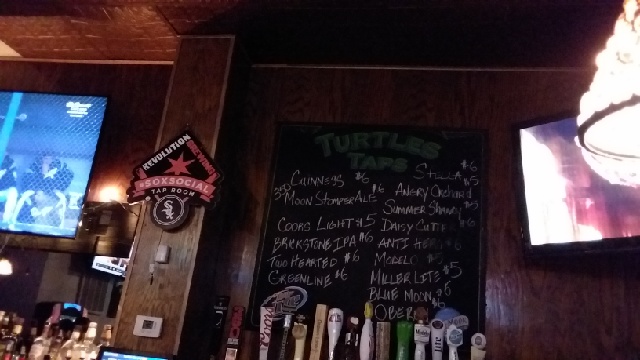 REVOLUTION
BREWING
#SOXSOCIAL
TAP ROOM
SOX
TURTLES
TAPS
GUINNESS $6
3RD MOON STOMPER ALE $6
COORS LIGHT $5
BRICKSTONE IPA $6
TWO HEARTED $6
GREENLINE $6
STELLA $6
ANGRY ORCHARD $5
SUMMER SHANDY
DAISY CUTTER $6
ANTI HERO 6
MODELO $5
MILLER LITE $5
BLUE MOON $6
OBERON
Coors
Lite